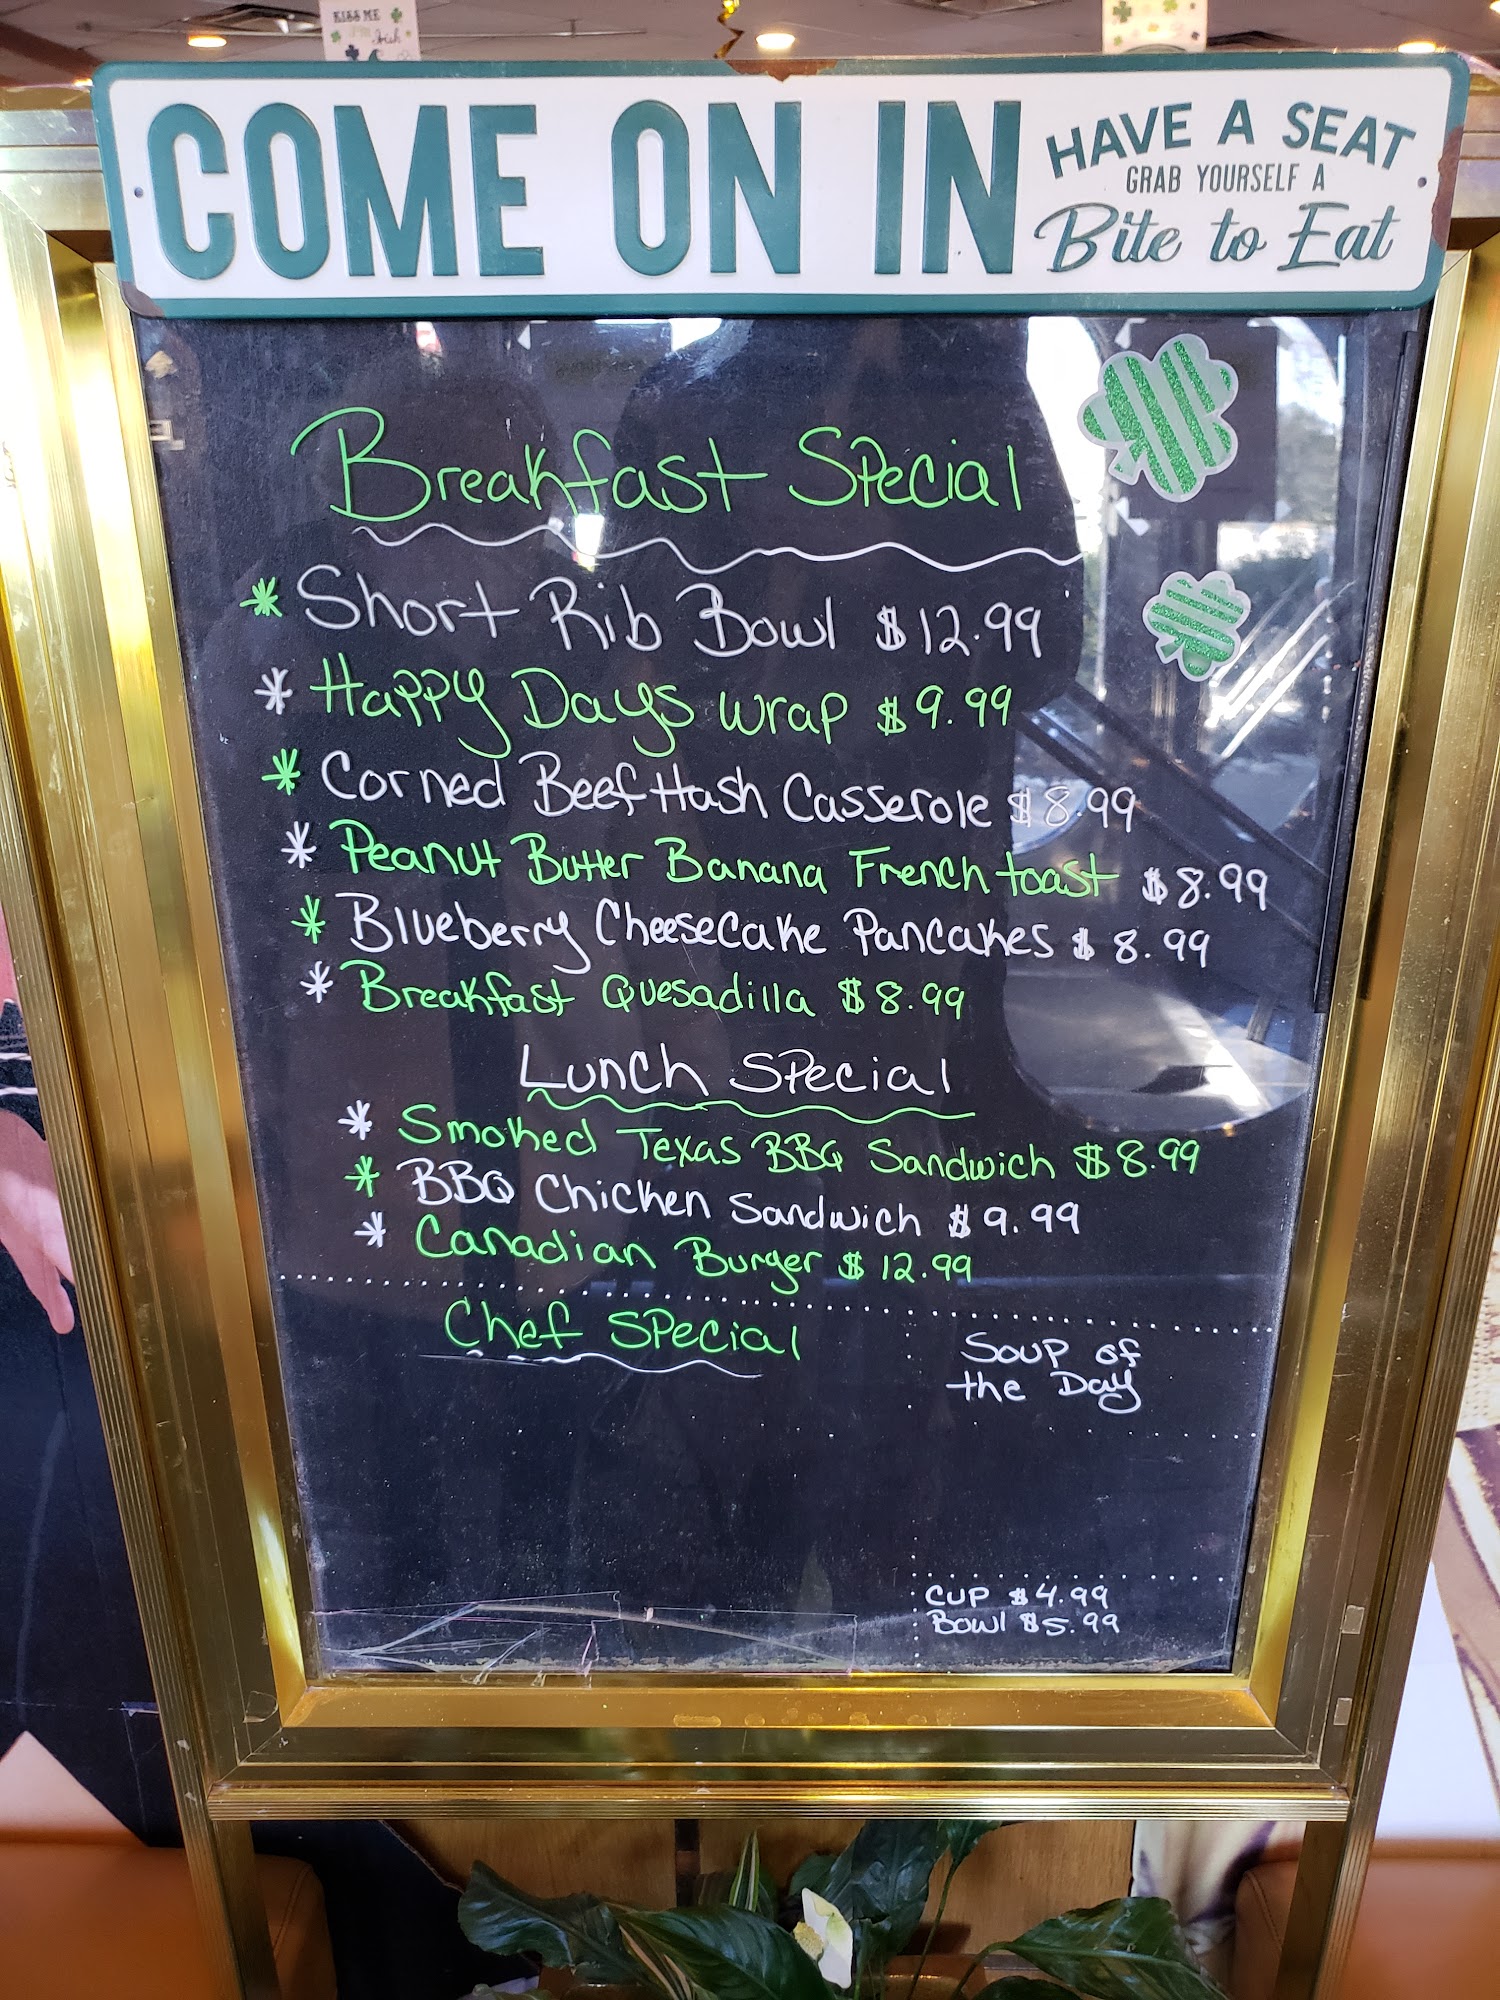 KISS ME
I'm Irish
COME ON IN
HAVE A SEAT
GRAB YOURSELF A
Bite to Eat
Breakfast Special
* Short Rib Bowl $12.99
* Happy Days Wrap $9.99
* Corned Beef Hash Casserole $8.99
* Peanut Butter Banana French toast $8.99
* Blueberry Cheesecake Pancakes $8.99
* Breakfast Quesadilla $8.99
Lunch Special
* Smoked Texas BBQ Sandwich $8.99
* BBQ Chicken Sandwich $9.99
* Canadian Burger $12.99
Chef Special
Soup of
the Day
Cup $4.99
Bowl $5.99